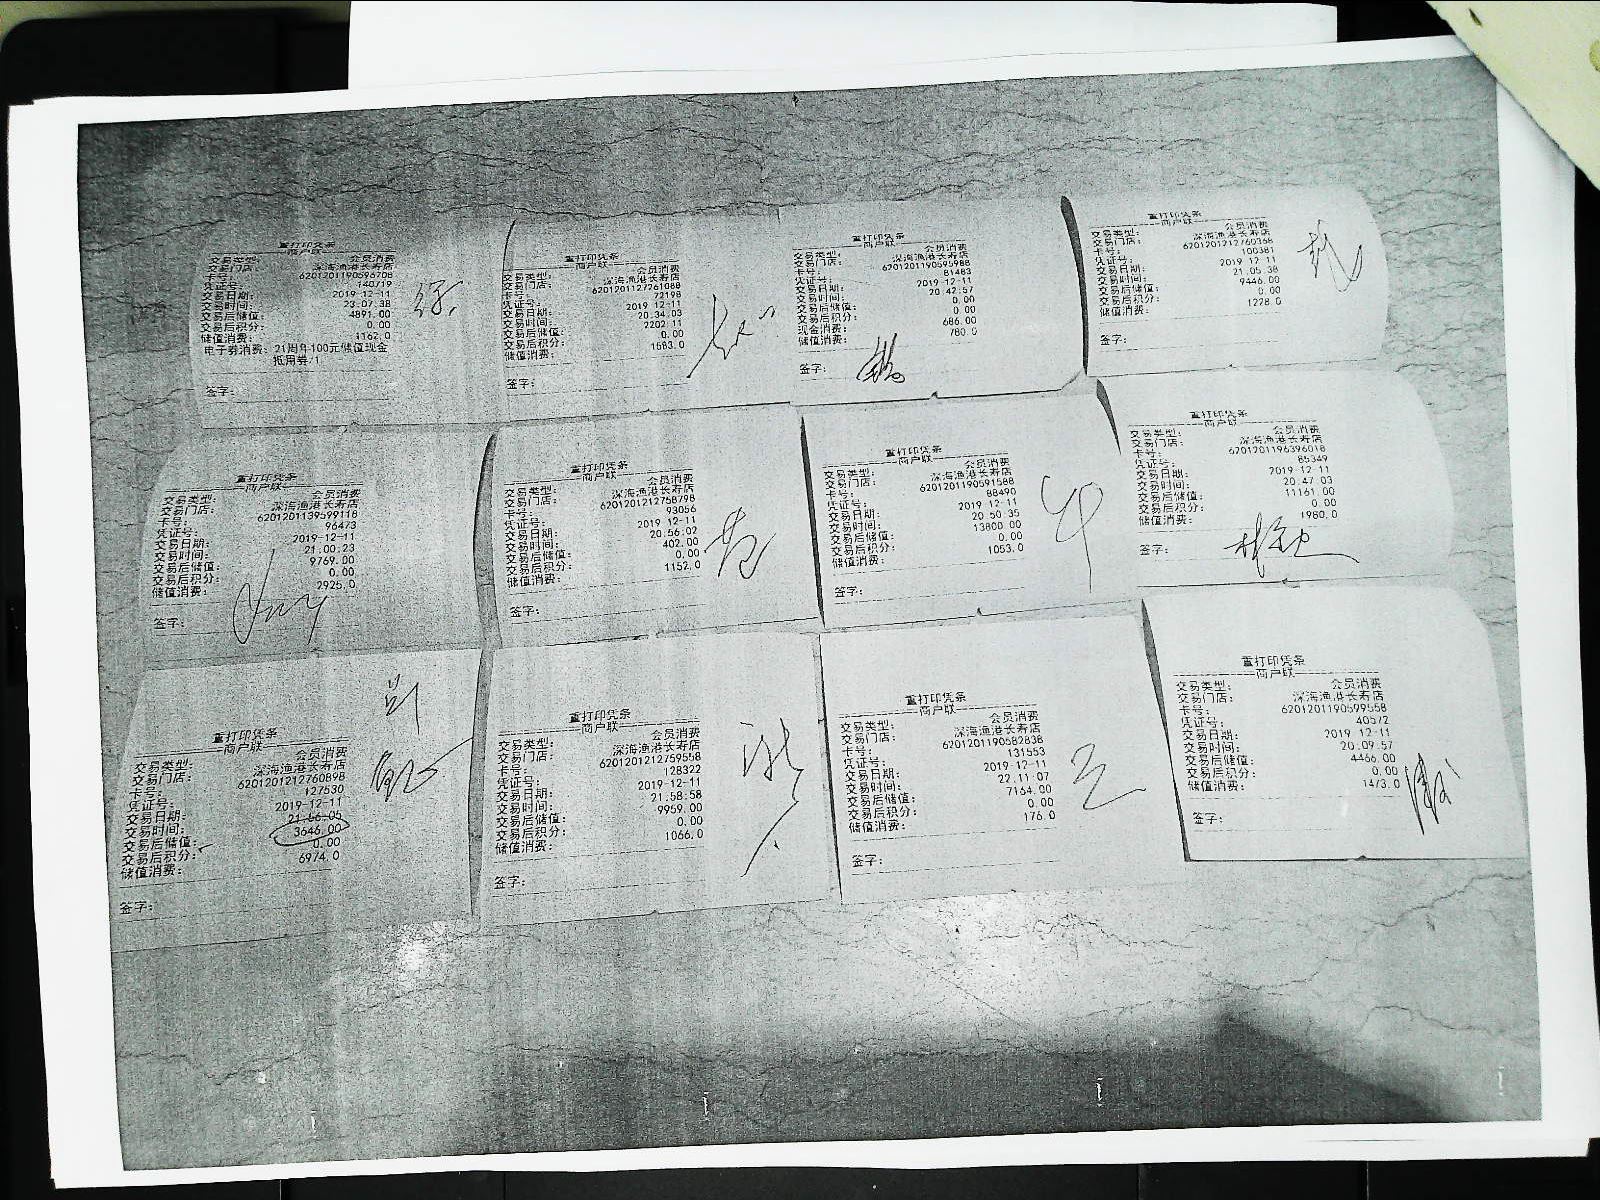 重打印凭条
商户联
交易类型: 会员消费
交易门店: 深海渔港长寿店
卡号: 6201201190596708
凭证号: 140719
交易日期: 2019-12-11
交易时间: 23:07:38
交易后储值: 4891.00
交易后积分: 0.00
储值消费: 1162.0
电子券消费: 21周年100元储值现金
抵用券/1
签字:
重打印凭条
商户联
交易类型: 会员消费
交易门店: 深海渔港长寿店
卡号: 6201201127261088
凭证号: 72198
交易日期: 2019-12-11
交易时间: 20:34:03
交易后储值: 2202.11
交易后积分: 0.00
储值消费: 1583.0
签字:
重打印凭条
商户联
交易类型: 会员消费
交易门店: 深海渔港长寿店
卡号: 6201201190595988
凭证号: 81483
交易日期: 2019-12-11
交易时间: 20:42:57
交易后储值: 0.00
交易后积分: 0.00
现金消费: 686.00
储值消费: 780.0
签字:
重打印凭条
商户联
交易类型: 会员消费
交易门店: 深海渔港长寿店
卡号: 6201201212760368
凭证号: 100381
交易日期: 2019-12-11
交易时间: 21:05:38
交易后储值: 9446.00
交易后积分: 0.00
储值消费: 1228.0
签字:
重打印凭条
商户联
交易类型: 会员消费
交易门店: 深海渔港长寿店
卡号: 6201201139599118
凭证号: 96473
交易日期: 2019-12-11
交易时间: 21:00:23
交易后储值: 9769.00
交易后积分: 0.00
储值消费: 2925.0
签字:
重打印凭条
商户联
交易类型: 会员消费
交易门店: 深海渔港长寿店
卡号: 6201201212758798
凭证号: 93056
交易日期: 2019-12-11
交易时间: 20:56:02
交易后储值: 402.00
交易后积分: 0.00
储值消费: 1152.0
签字:
重打印凭条
商户联
交易类型: 会员消费
交易门店: 深海渔港长寿店
卡号: 6201201190591588
凭证号: 88490
交易日期: 2019-12-11
交易时间: 20:50:35
交易后储值: 13800.00
交易后积分: 0.00
储值消费: 1053.0
签字:
重打印凭条
商户联
交易类型: 会员消费
交易门店: 深海渔港长寿店
卡号: 6201201196396018
凭证号: 85349
交易日期: 2019-12-11
交易时间: 20:47:03
交易后储值: 11161.00
交易后积分: 0.00
储值消费: 1980.0
签字:
重打印凭条
商户联
交易类型: 会员消费
交易门店: 深海渔港长寿店
卡号: 6201201212760898
凭证号: 127530
交易日期: 2019-12-11
交易时间: 21:56:05
交易后储值: 3646.00
交易后积分: 0.00
储值消费: 6974.0
签字:
重打印凭条
商户联
交易类型: 会员消费
交易门店: 深海渔港长寿店
卡号: 6201201212759558
凭证号: 128322
交易日期: 2019-12-11
交易时间: 21:58:58
交易后储值: 9959.00
交易后积分: 0.00
储值消费: 1066.0
签字:
重打印凭条
商户联
交易类型: 会员消费
交易门店: 深海渔港长寿店
卡号: 6201201190582838
凭证号: 131553
交易日期: 2019-12-11
交易时间: 22:11:07
交易后储值: 7164.00
交易后积分: 0.00
储值消费: 176.0
签字:
重打印凭条
商户联
交易类型: 会员消费
交易门店: 深海渔港长寿店
卡号: 6201201190599558
凭证号: 40572
交易日期: 2019-12-11
交易时间: 20:09:57
交易后储值: 4466.00
交易后积分: 0.00
储值消费: 1473.0
签字: